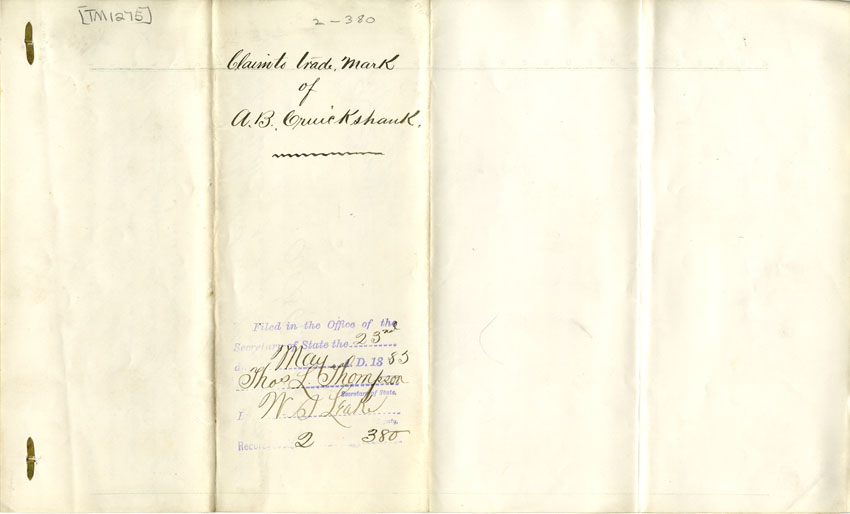 [TM1275]
2-380
Claim to trade, mark
of
A.B. Cruickshank.
Filed in the Office of the
Secretary of State the 23rd
May A.D. 1883
Thos L. Thompson
Secretary of State.
W. J. Leak
2 380